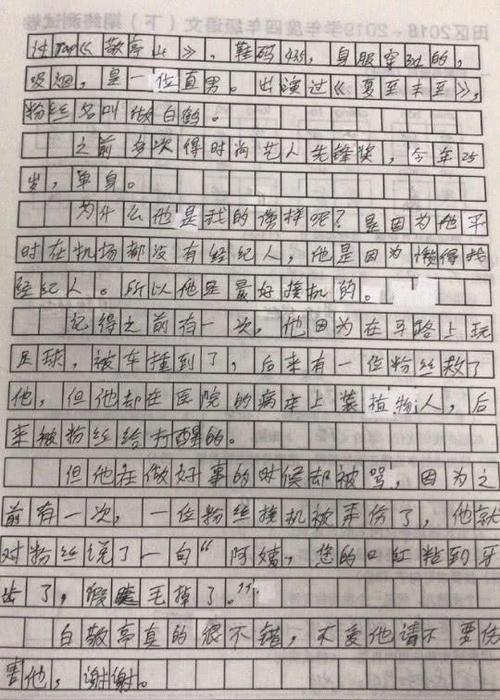 田区2018-2019学年度四年级语文(下)期终测试卷
过Top《敬亭山》，鞋码43，身服穿xl的，
吸烟，是一位直男。出演过《夏至未至》，
粉丝名叫做白鹤。
之前多次得时尚艺人先锋奖，今年25
岁，单身。
为什么他是我的榜样呢？是因为他平
时在机场都没有经纪人，他是因为懒得找
经纪人。所以他是最好接机的。
记得之前有一次，他因为在马路上玩
足球，被车撞到了，后来有一位粉丝救了
他，但他却在医院的病床上装植物人，后
来被粉丝给打醒的。
但他在做好事的时候却被骂，因为之
前有一次，一位粉丝接机被弄伤了，他就
对粉丝说了一句“阿姨，您的口红粘到牙
齿了，假睫毛掉了。”
白敬亭真的很不错，不爱他请不要伤
害他，谢谢。